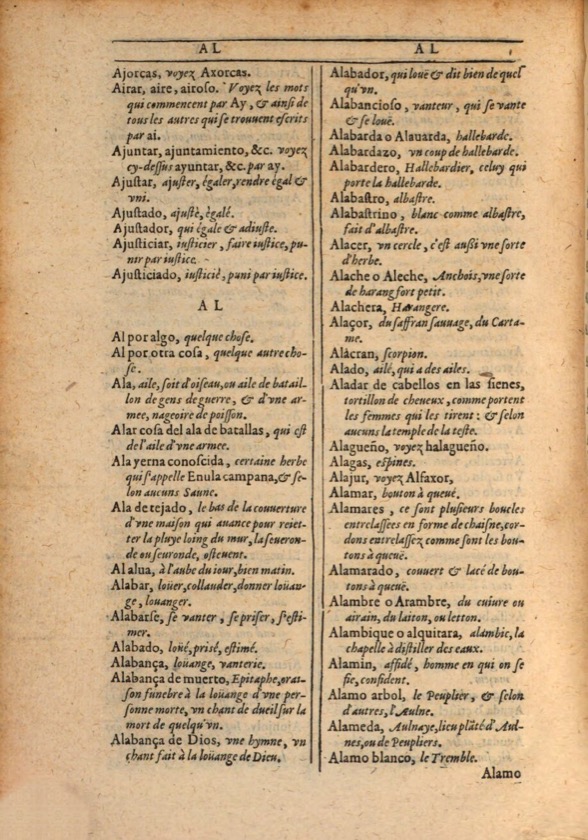 AL
AL
Ajorcas, voyez Axorcas.
Airar, aire, airoso. Voyez les mots
qui commencent par Ay, & ainsi de
tous les autres qui se trouuent escrits
par ai.
Ajuntar, ajuntamiento, &c. voyez
cy-dessus ayuntar, &c. par ay.
Ajustar, ajuster, égaler, rendre égal &
vni.
Ajustado, ajusté, égalé.
Ajustador, qui égale & adiuste.
Ajusticiar, iusticier, faire iustice, pu-
nir par iustice.
Ajusticiado, iusticié, puni par iustice.
AL
Al por algo, quelque chose.
Al por otra cosa, quelque autre cho-
se.
Ala, aile, soit d'oiseau, ou aile de batail-
lon de gens de guerre, & d'vne ar-
mee, nageoire de poisson.
Alar cosa del ala de batallas, qui est
de l'aile d'vne armee.
Ala yerna conoscida, certaine herbe
qui s'appelle Enula campana, & se-
lon aucuns Saune.
Ala de tejado, le bas de la couuerture
d'vne maison qui auance pour reiet-
ter la pluye loing du mur, la seueron-
de ou seuronde, osteuent.
Al alua, à l'aube du iour, bien matin.
Alabar, loüer, collauder, donner loüan-
ge, louanger.
Alabarse, se vanter, se priser, s'esti-
mer.
Alabado, loüé, prisé, estimé.
Alabança, loüange, vanterie.
Alabança de muerto, Epitaphe, orai-
son funebre à la loüange d'vne per-
sonne morte, vn chant de dueil sur la
mort de quelqu'vn.
Alabança de Dios, vne hymne, vn
chant fait à la loüange de Dieu.
Alabador, qui louë & dit bien de quel
qu'vn.
Alabancioso, vanteur, qui se vante
& se louë.
Alabarda o Alauarda, hallebarde.
Alabardazo, vn coup de hallebarde.
Alabardero, Hallebardier, celuy qui
porte la hallebarde.
Alabastro, albastre.
Alabastrino, blanc comme albastre,
fait d'albastre.
Alacer, vn cercle, c'est aussi vne sorte
d'herbe.
Alache o Aleche, Anchois, vne sorte
de harang fort petit.
Alachera, Harangere.
Alaçor, du saffran sauuage, du Carta-
me.
Alacran, scorpion.
Alado, ailé, qui a des ailes.
Aladar de cabellos en las sienes,
tortillon de cheueux, comme portent
les femmes qui les tirent : & selon
aucuns la temple de la teste.
Alagueño, voyez halagueño.
Alagas, espines.
Alajur, voyez Alfaxor,
Alamar, bouton à queuë.
Alamares, ce sont plusieurs boucles
entrelassees en forme de chaisne, cor-
dons entrelassez comme sont les bou-
tons à queuë.
Alamarado, couuert & lacé de bou-
tons à queuë.
Alambre o Arambre, du cuiure ou
airain, du laiton, ou letton.
Alambique o alquitara, alambic, la
chapelle à distiller des eaux.
Alamin, affidé, homme en qui on se
fie, confident.
Alamo arbol, le Peuplier, & selon
d'autres, l'Aulne.
Alameda, Aulnaye, lieu plãté d'Aul-
nes, ou de Peupliers.
Alamo blanco, le Tremble.
Alamo